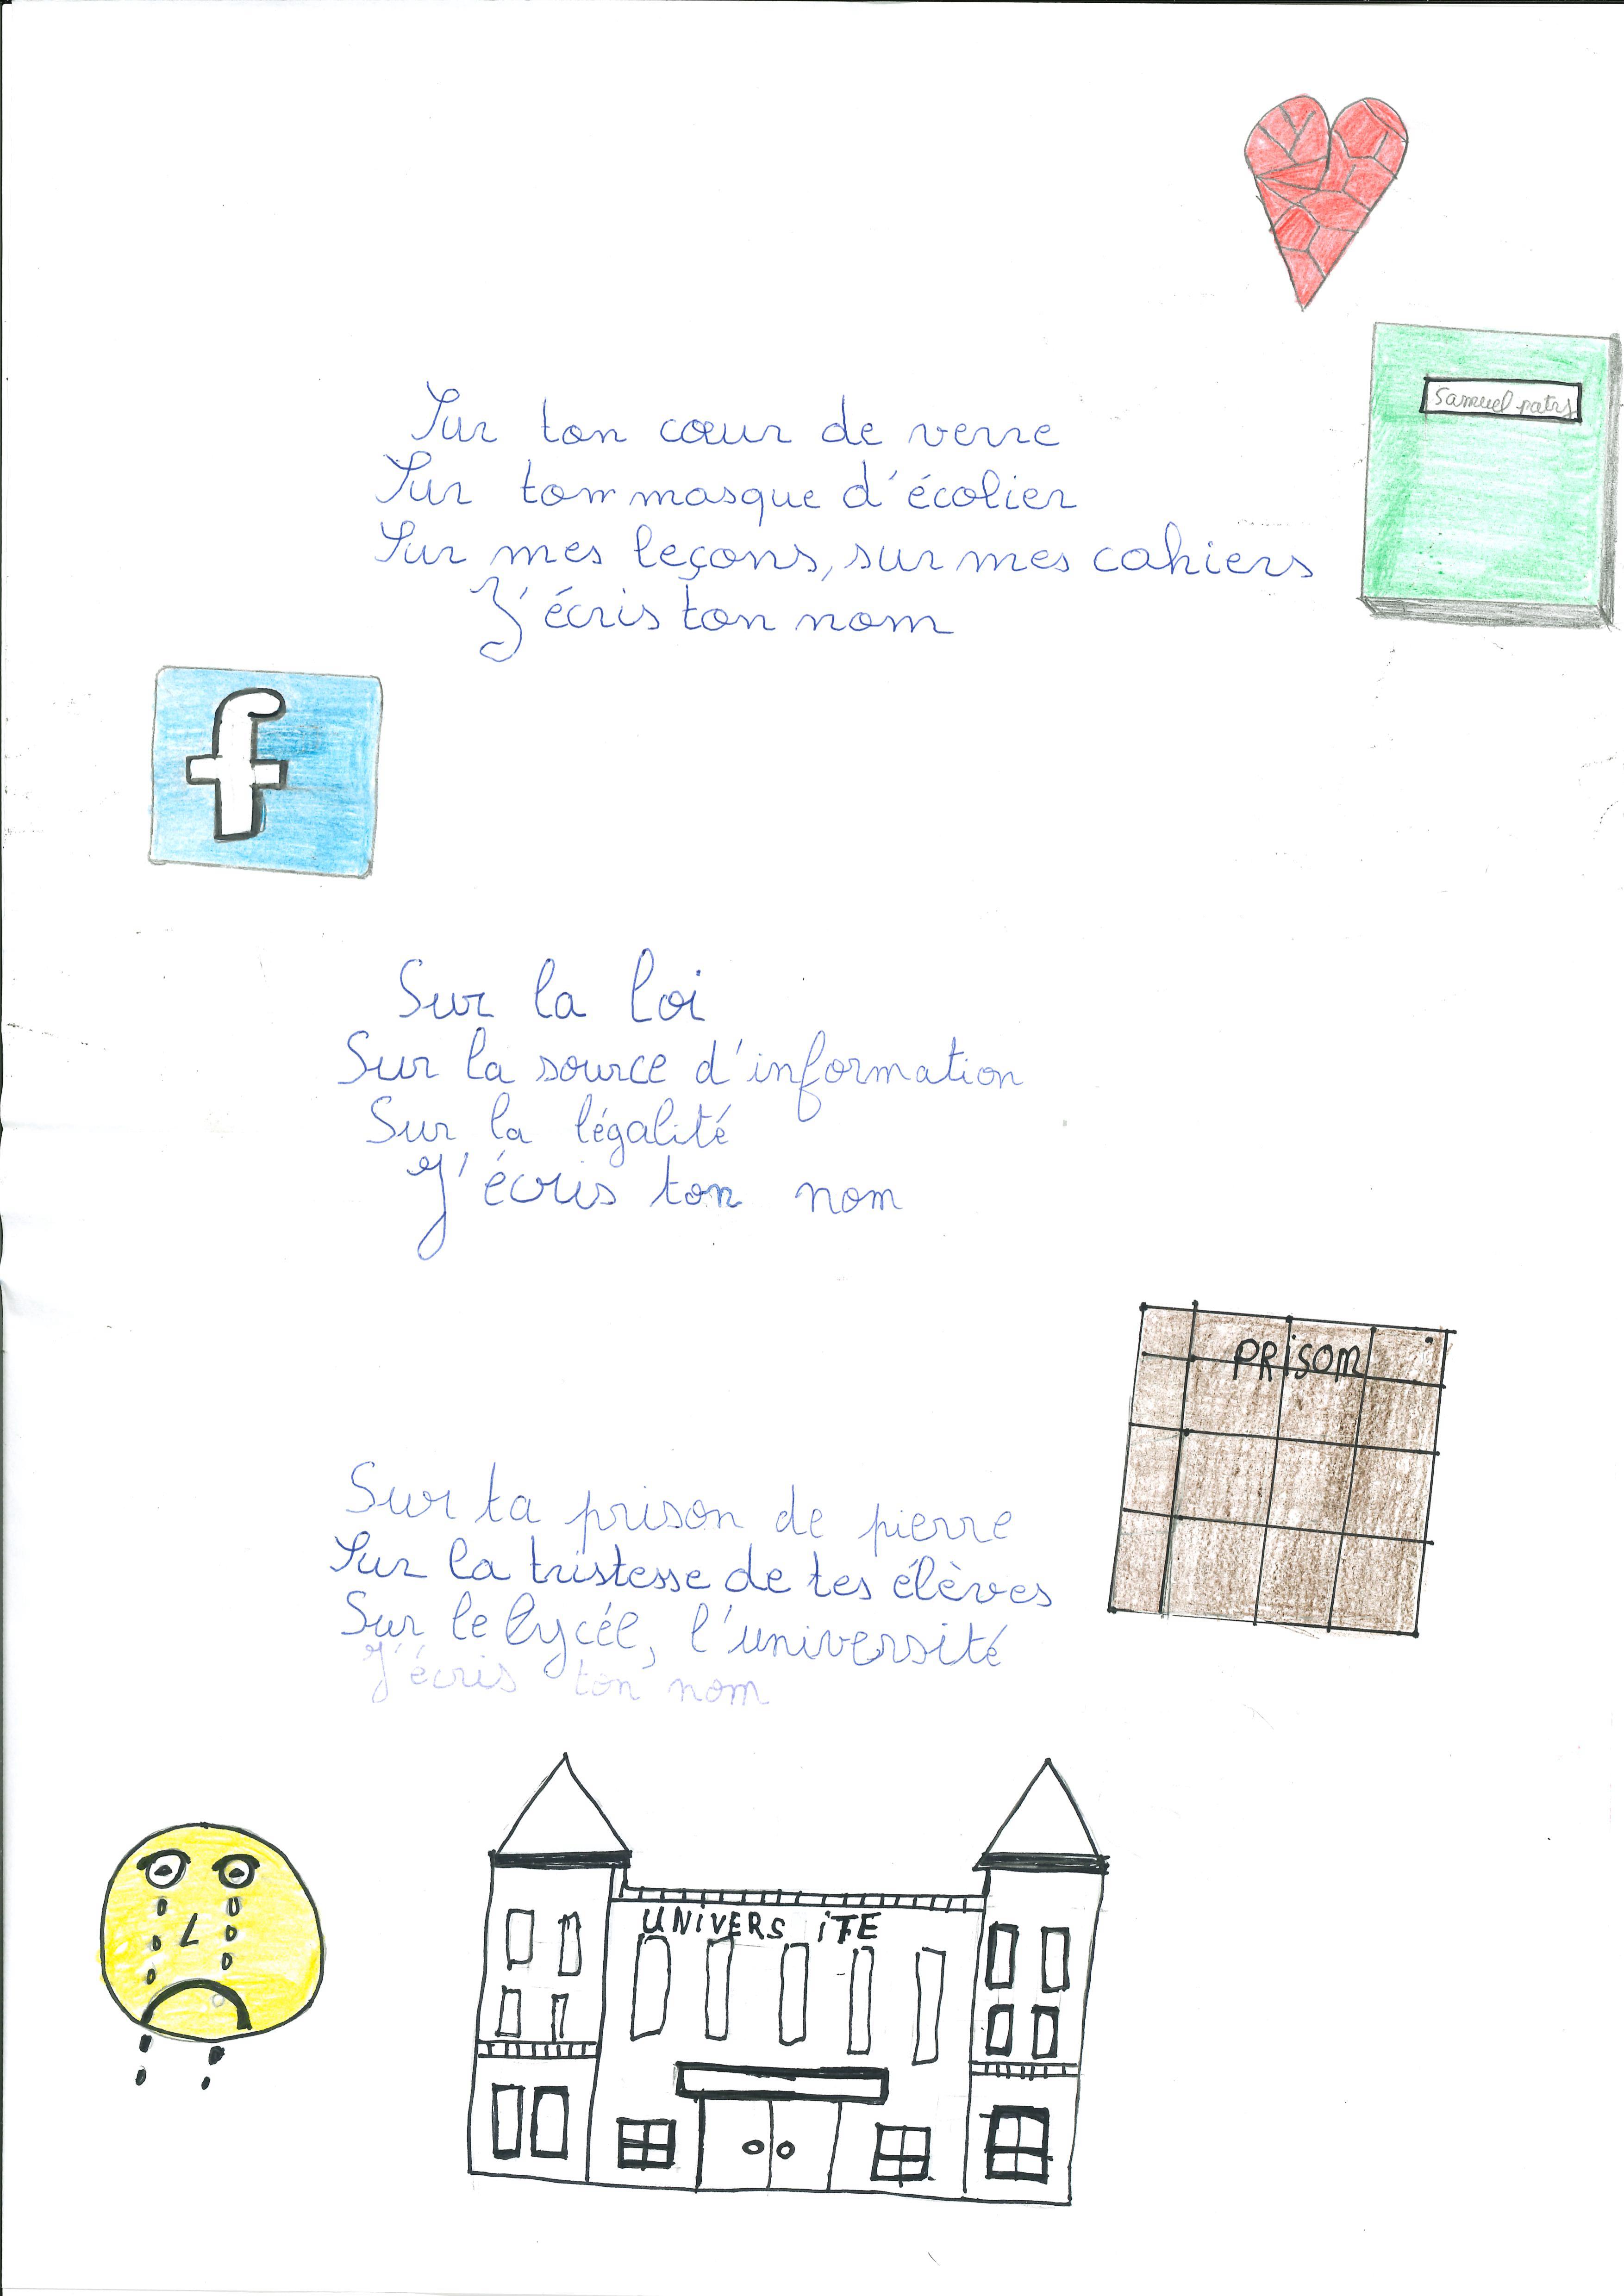 Samuel paty
Sur ton cœur de verre
Sur ton masque d'écolier
Sur mes leçons, sur mes cahiers
J'écris ton nom
f
Sur la loi
Sur la source d'information
Sur la légalité
J'écris ton nom
PRiSON
Sur ta prison de pierre
Sur la tristesse de tes élèves
Sur le lycée, l'université
J'écris ton nom
UNiVERS iTE